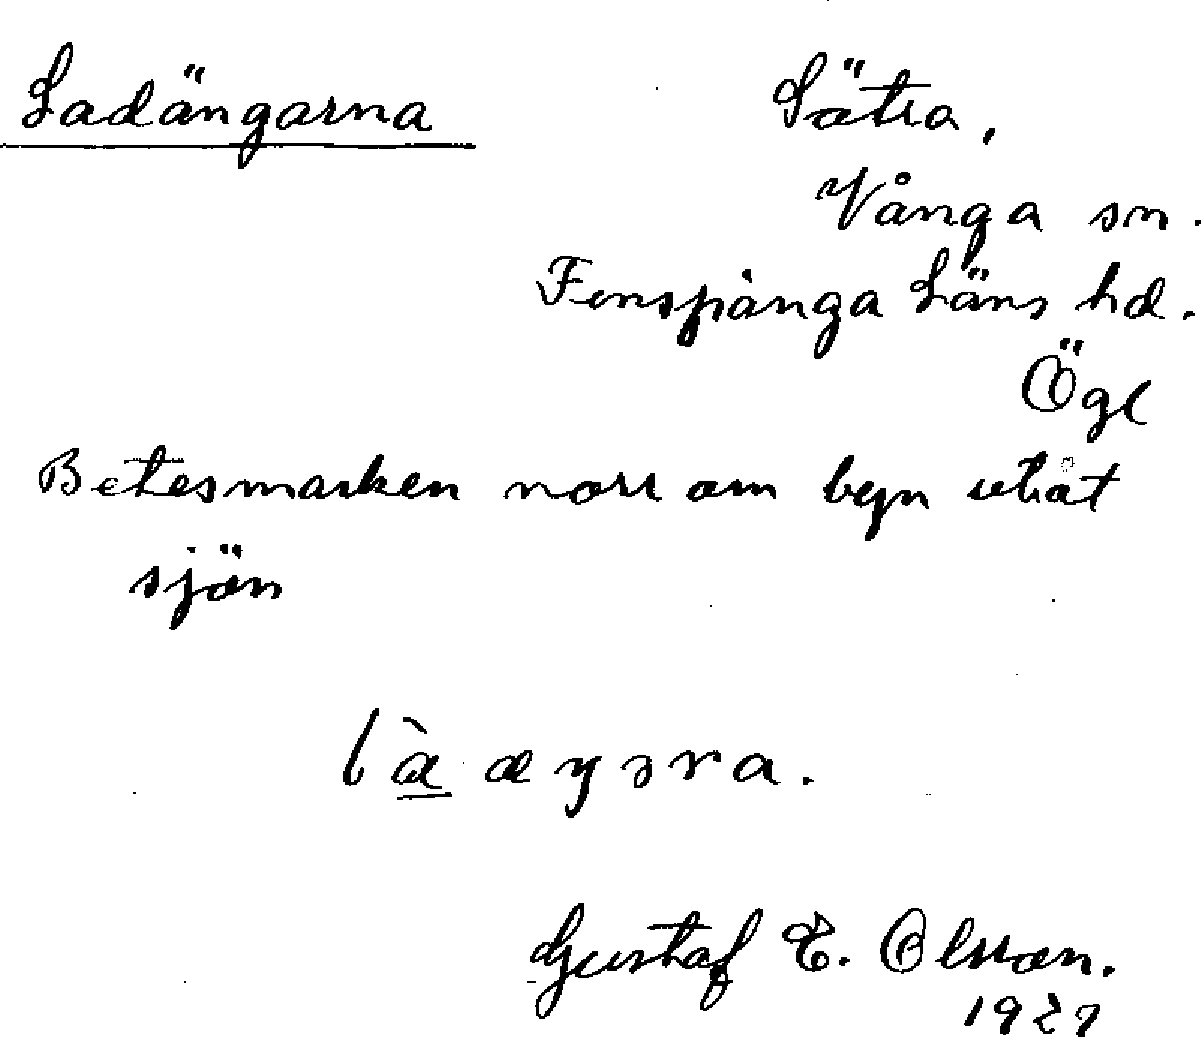 Ladängarna
Sätra,
Vånga sn.
Finspånga Läns hd.
Ögl
Betesmarken norr om byn utåt
sjön
Gustaf E. Olsson.
1927